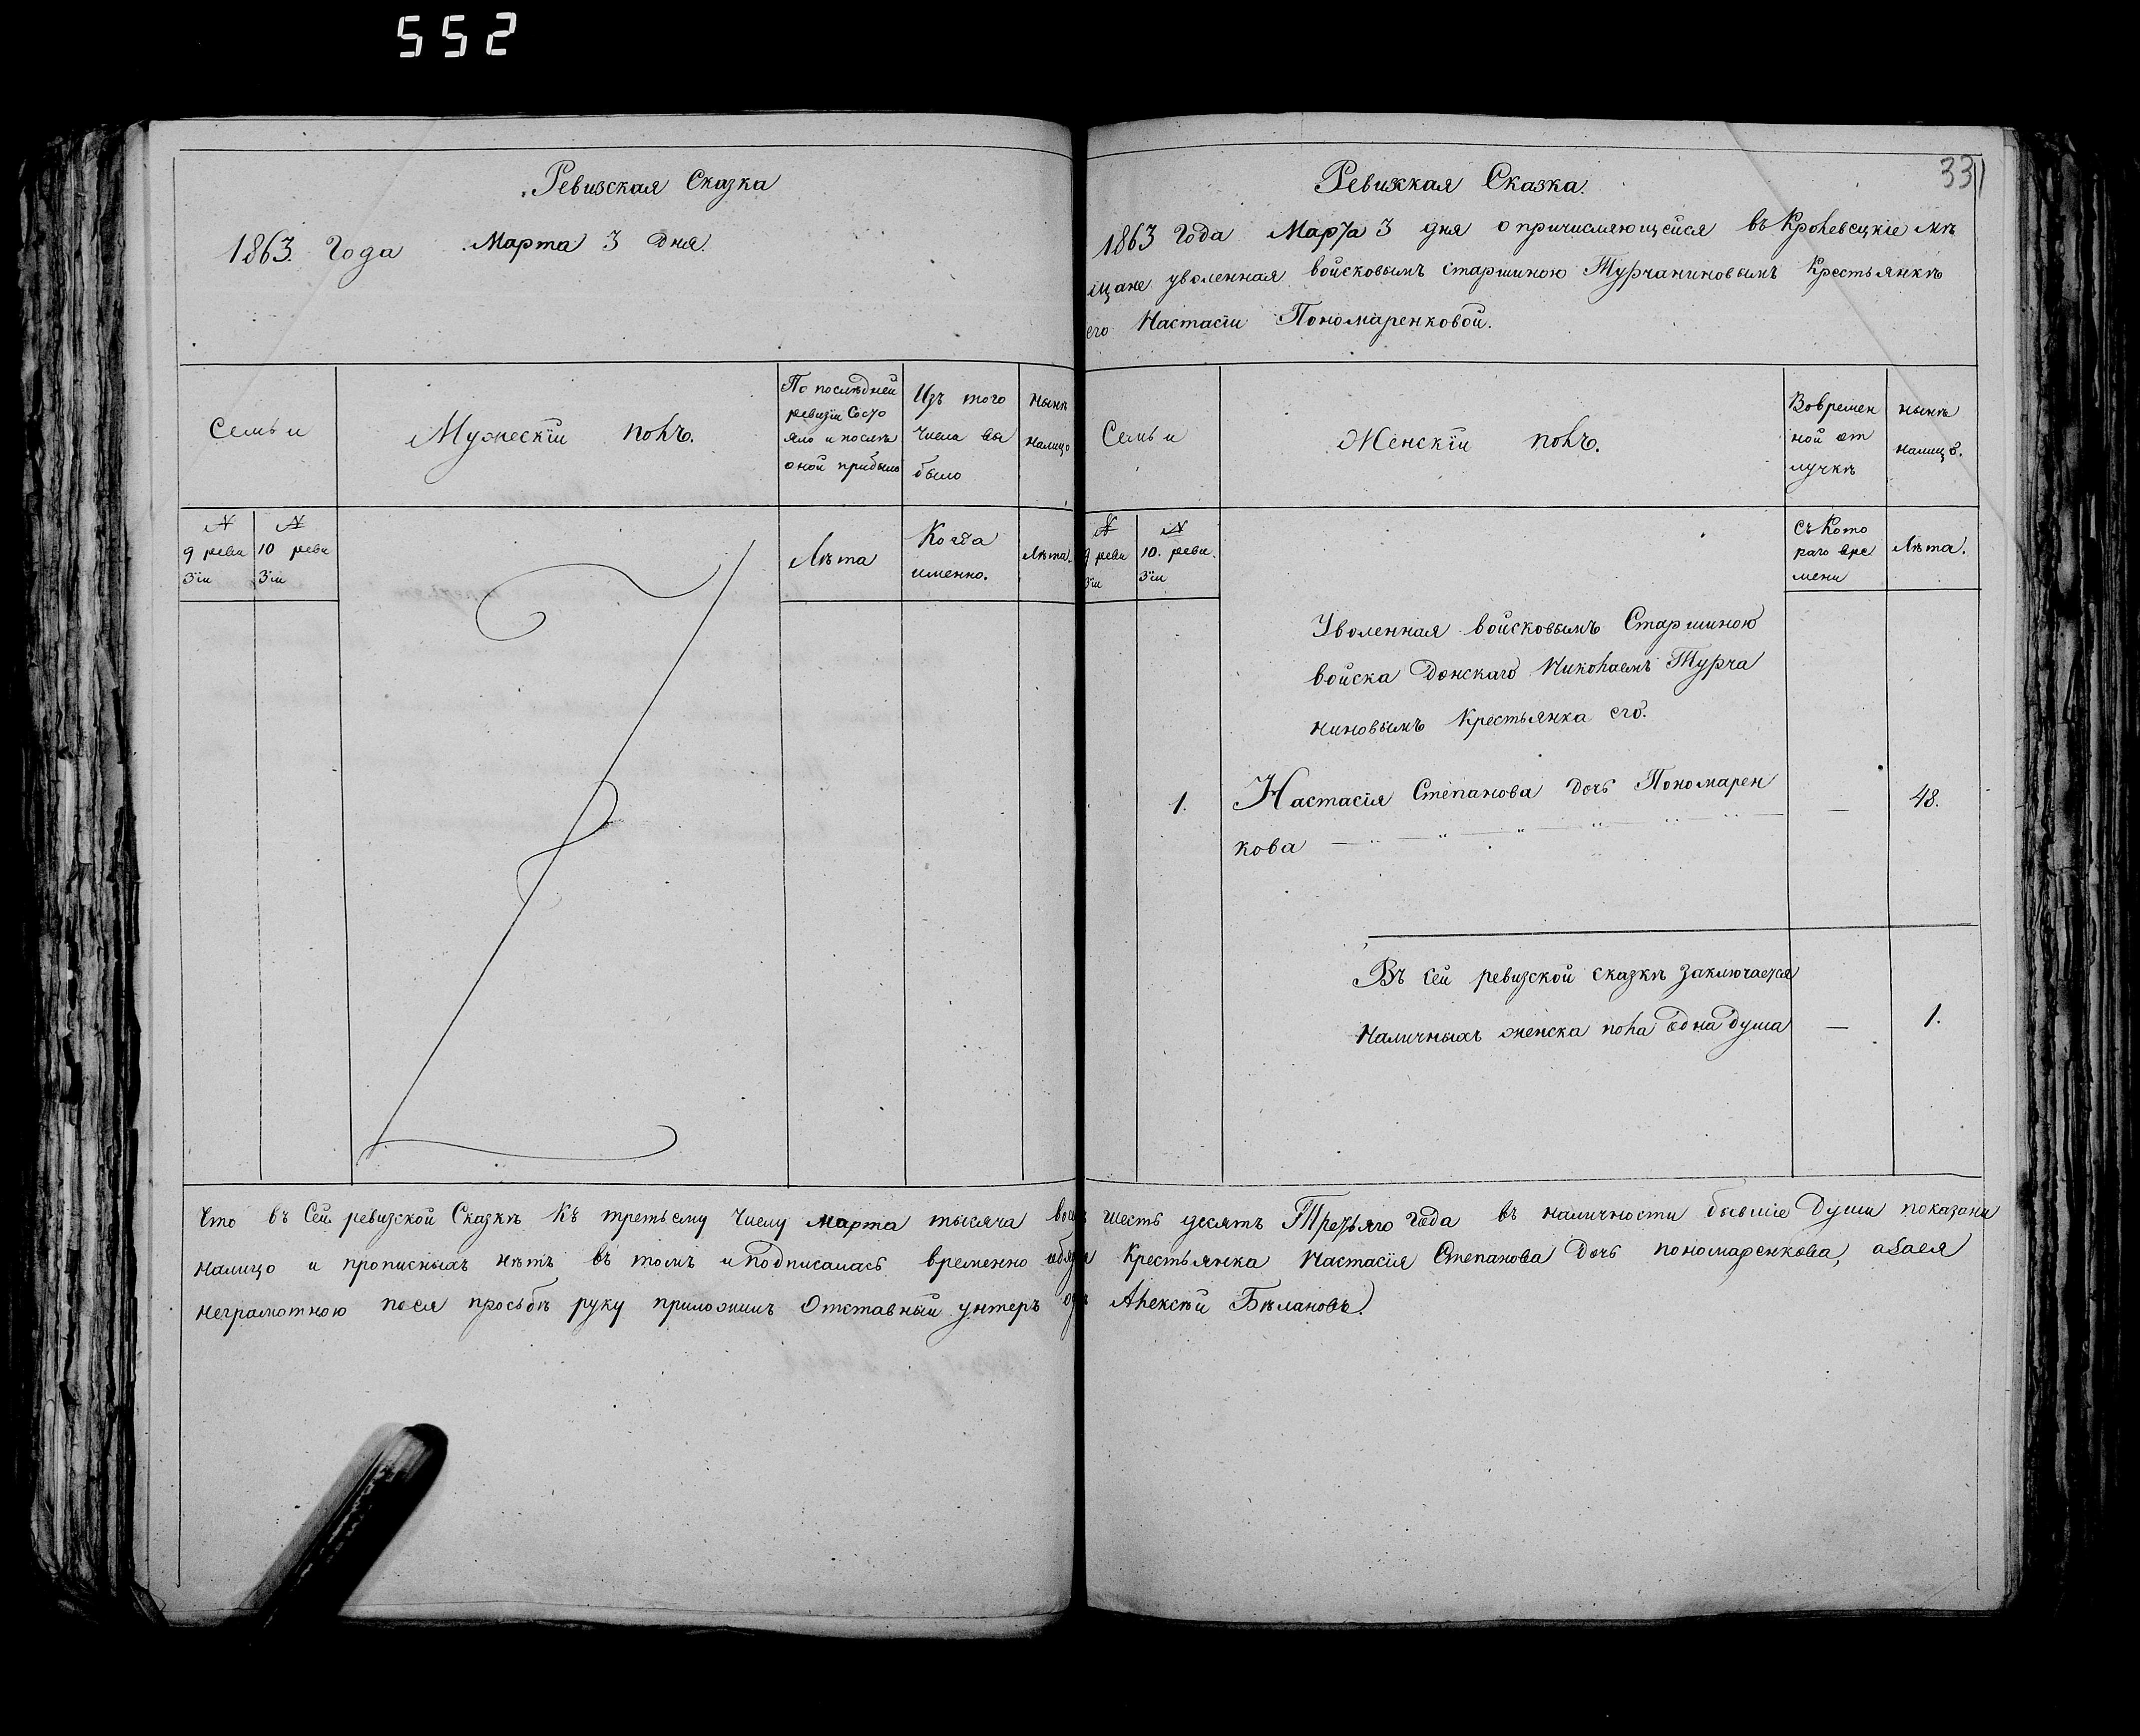 552
Ревизская Сказка
1863. Года Марта 3 дня.
Семьи
Мужескїй полъ.
По послѣдней
ревизіи состо
яло и послѣ
оной прибыло
Изъ того
числа вы
было
Нынѣ
налицо
№
9 реви
зіи
№
10 реви
зіи
Лѣта
Когда
именно.
Лѣта.
331
Ревизкая Сказка.
1863 Года Марта 3 дня о причисляющейся въ Кролевецкіе мѣ
щане уволенная войсковымъ старшиною Турчаниновымъ Крестьянкѣ
его Настасіи Пономаренковой.
Семьи
Женскїй полъ.
Вовремен
ной от
лучкѣ
нынѣ
налицо.
№
9 реви
зіи
№
10. реви.
зіи
Съ Кото
раго вре
мени
Лѣта.
Уволенная войсковымъ Старшиною
войска Донскаго Николаемъ Турча
ниновымъ Крестьянка его.
1. Настасія Степанова дочь Пономарен — 48.
кова
Въ сей ревизской сказкѣ заключается
Наличныхъ женска пола одна душа — 1.
Что въ Сей ревизской Сказкѣ Къ третьему Числу марта тысяча шесть десятъ Третьяго года въ наличности бывшіе Души показаны
налицо и прописныхъ нѣтъ въ томъ и подписалась временно Крестьянка Настасія Степанова Дочь пономаренкова, а за ея
неграмотною по ея просьбѣ руку приложилъ Отставный унтеръ Алексѣй Бѣлановъ